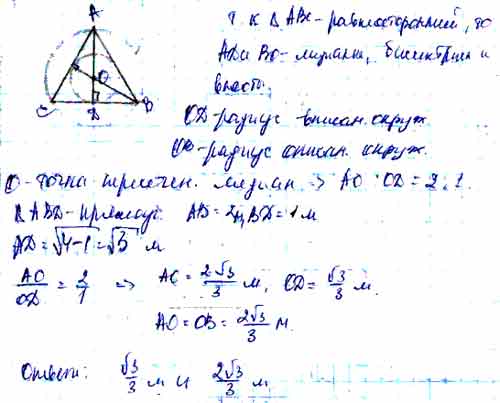 A
O
C
D
B
Т.к. Δ ABC - равносторонний, то
AD и BO - медианы, биссектрисы и
высоты.
OD - радиус вписан. окруж.
OB - радиус описан. окруж.
O - точка пересечен. медиан => AO : OD = 2:1.
Δ ABD - прямоуг. AB = 2м, BD = 1 м
AD = √4-1 = √3 м
AO/OD = 2/1 => AO = 2√3/3 м, OD = √3/3 м.
AO = OB = 2√3/3 м.
Ответ: √3/3 м и 2√3/3 м